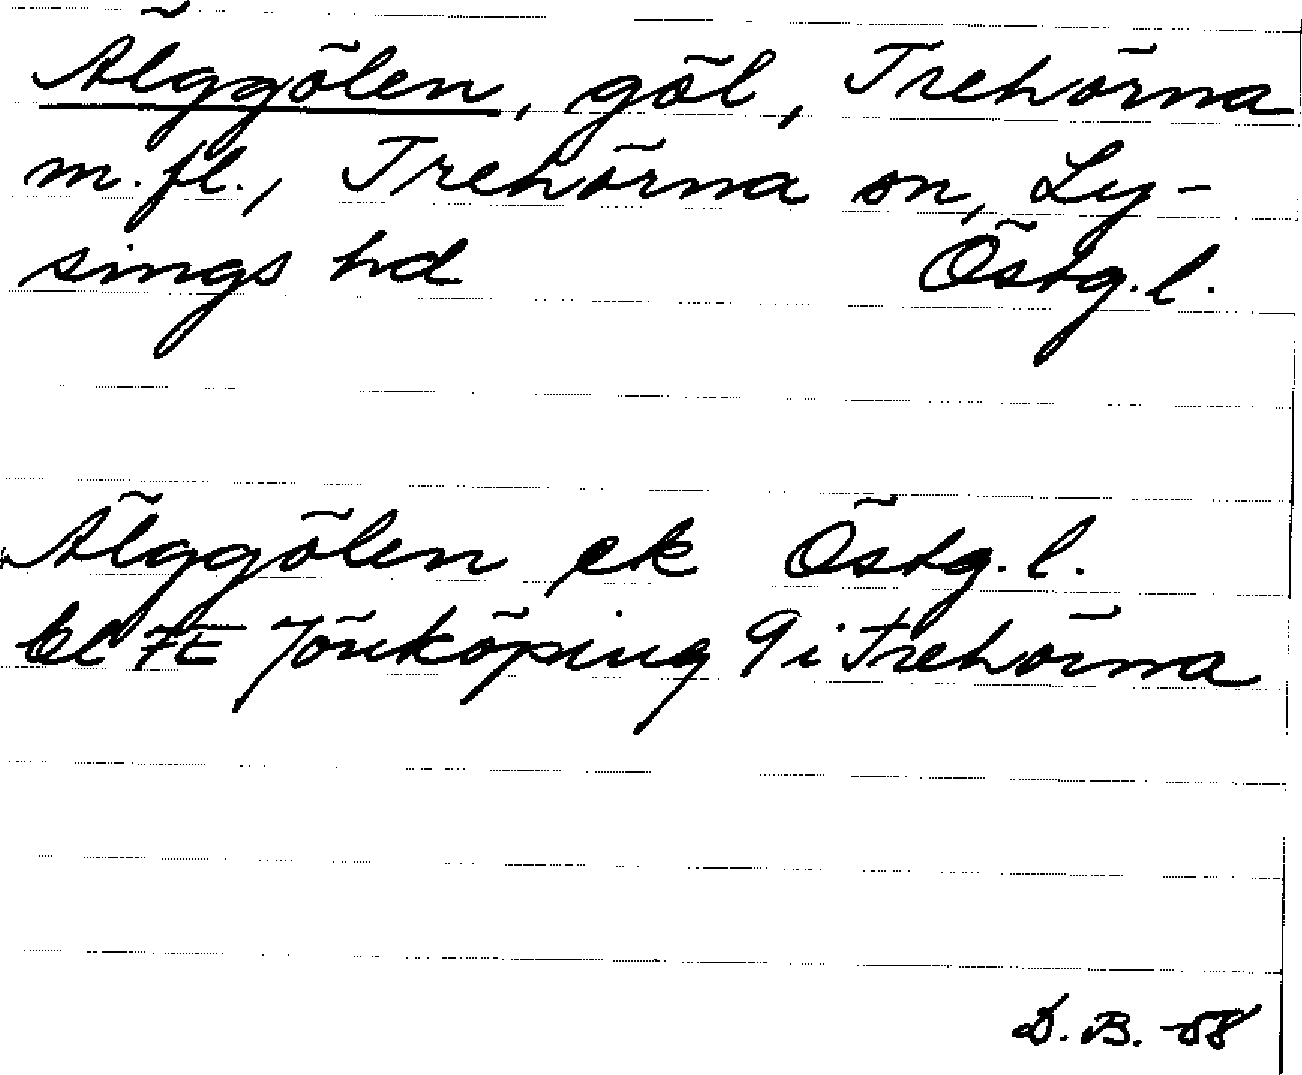 Älggölen, göl, Trehörna
m.fl., Trehörna sn, Ly-
sings hd Östg.l.
Älggölen ek Östg.l.
bl 7E Jönköping 9 i Trehörna
D.B. -58